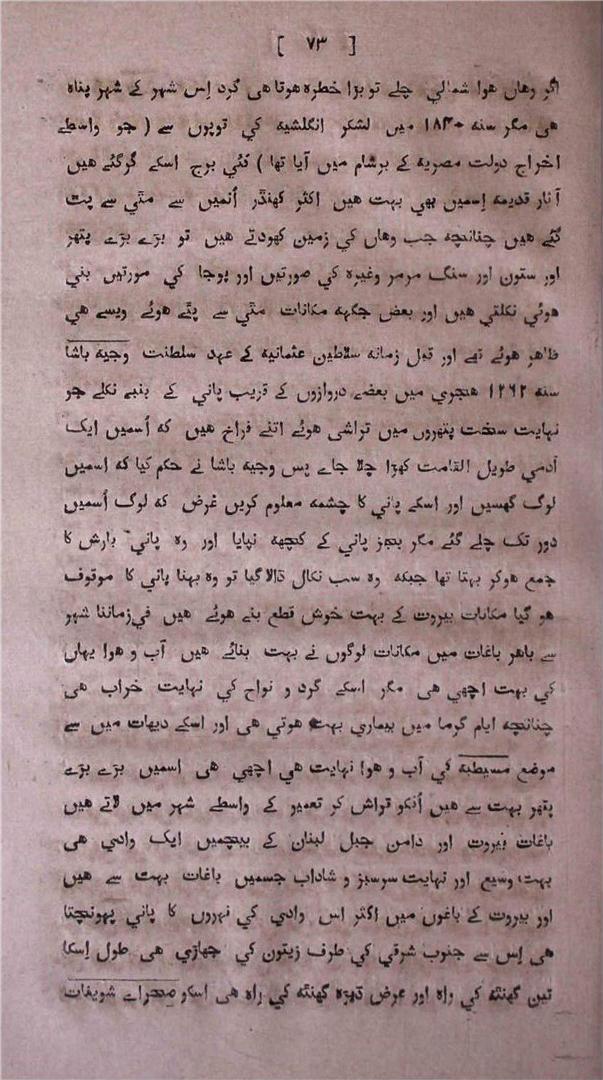 [ ۷۳ ]
اگر وهاں هوا شمالي چلے تو بڑا خطرہ هوتا هی گرد اِس شهر کے شهر پناہ
هی مگر سنه ۱۸۴۰ میں لشکر انگلشیه کي توپوں سے ( جو واسطے
اخراج دولت مصریه کے برشام میں آیا تها ) کئي برج اسکے گرگئے هیں
آثار قدیمه اِسمیں بهي بهت هیں اکثر کهنڈر اُنمیں سے مٹي سے پٹ
گئے هیں چنانچه جب وهاں کي زمین کهودتے هیں تو بڑے بڑے پتهر
اور ستون اور سنگ مرمر وغیرہ کي صورتیں اور پوجا کي مورتیں بني
هوئي نکلتي هیں اور بعض جگهه مکانات مٹي سے پٹے هوئے ویسے هي
ظاهر هوئے تهے اور قبل زمانه سلاطین عثمانیه کے عهد سلطنت وجیه باشا
سنه ۱۲۶۲ هجري میں بعضے دروازوں کے قریب پاني کے بنبے نکلے جو
نهایت سخت پتهروں میں تراشی هوئے اتنے فراخ هیں که اُسمیں ایک
آدمي طویل القامت کهڑا چلا جاے پس وجیه باشا نے حکم کیا که اِسمیں
لوگ گهسیں اور اسکے پاني کا چشمه معلوم کریں غرض که لوگ اُسمیں
دور تک چلے گئے مگر بجز پاني کے کچهه نپایا اور وہ پاني بارش کا
جمع هوکر بهتا تها جبکه وہ سب نکال ڈالا گیا تو وہ بهنا پاني کا موقوف
هو گیا مکانات بیروت کے بهت خوش قطع بنے هوئے هیں في زماننا شهر
سے باهر باغات میں مکانات لوگوں نے بهت بنائے هیں آب و هوا یهاں
کي بهت اچهي هی مگر اسکے گرد و نواح کي نهایت خراب هی
چنانچه ایام گرما میں بیماري بهت هوتي هی اور اسکے دیهات میں سے
موضع مسیطبه کي آب و هوا نهایت هي اچهي هی اسمیں بڑے بڑے
پتهر بهت سے هیں اُنکو تراش کر تعمیر کے واسطے شهر میں لاتے هیں
باغات بیروت اور دامن جبل لبنان کے بیچمیں ایک وادي هی
بهت وسیع اور نهایت سرسبز و شاداب جسمیں باغات بهت سے هیں
اور بیروت کے باغوں میں اکثر اس وادي کي نهروں کا پاني پهونچتا
هی اِس سے جنوب شرقي کي طرف زیتون کي جهاڑي هی طول اِسکا
تین گهنٹه کي راہ اور عرض ڈیڑہ گهنٹه کي راہ هی اسکو صحراے شویفات